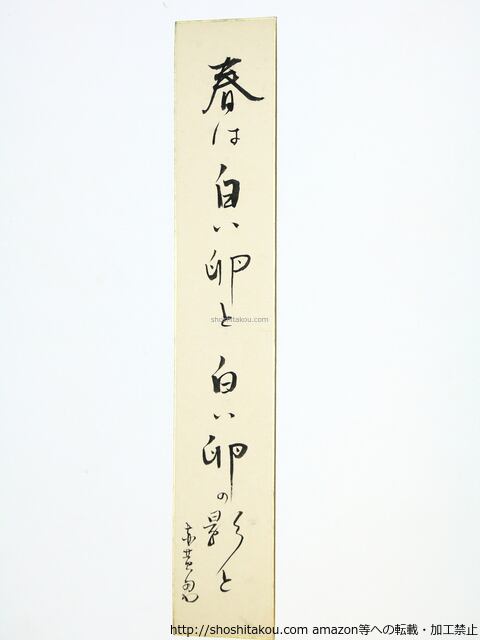 春は白い卵と白い卵の影と
赤黄男
shoshitakou.com
http://shoshitakou.com amazon等への転載・加工禁止